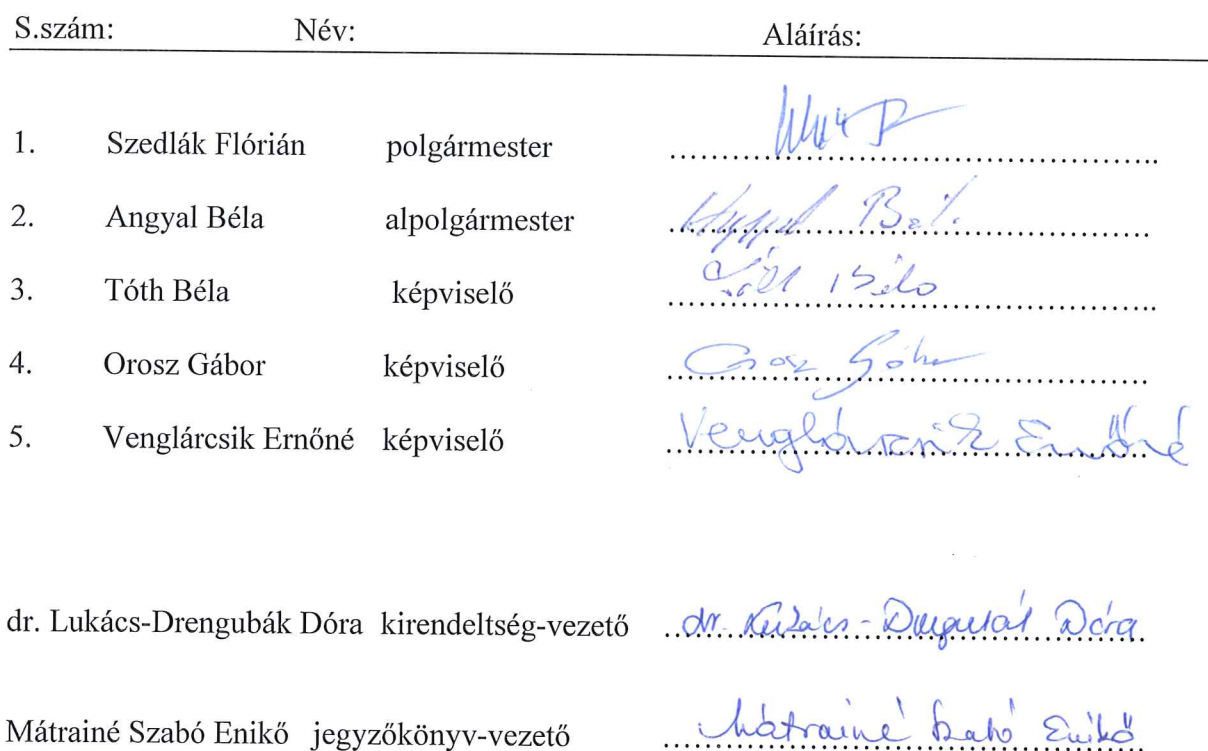 S.szám: Név: Aláírás:
1. Szedlák Flórián polgármester
2. Angyal Béla alpolgármester Béla
3. Tóth Béla képviselő Tóth Béla
4. Orosz Gábor képviselő Orosz Gábor
5. Venglárcsik Ernőné képviselő Venglárcsik Ernőné
dr. Lukács-Drengubák Dóra kirendeltség-vezető dr. Lukács-Drengubák Dóra
Mátrainé Szabó Enikő jegyzőkönyv-vezető Mátrainé Szabó Enikő